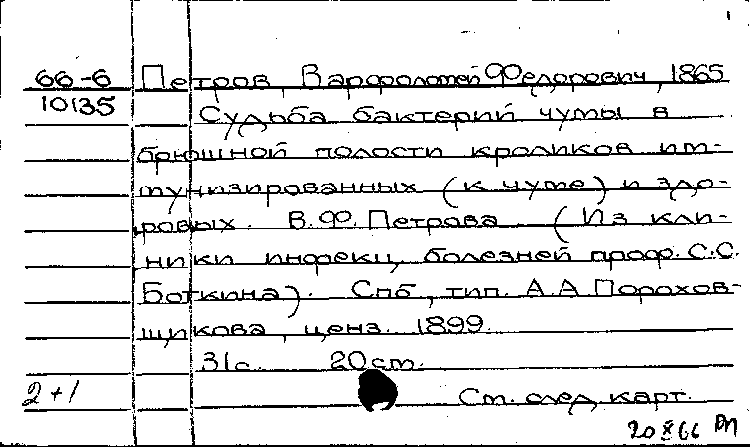 66-6 Петров, Варфоломей Федорович, 1865
10135 Судьба бактерий чумы в
брюшной полости кроликов им-
мунизированных (к чуме) и здо-
ровых. В.Ф. Петрова (Из кли-
ники инфекц. болезней проф. С.С.
Боткина). Спб, тип. А.А Порохов-
щикова, ценз. 1899.
31с. 20 см.
2+1 См. след. карт.
20 X 66